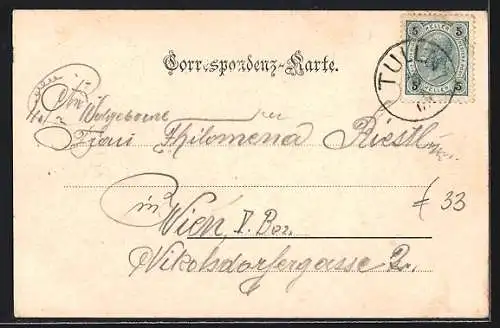 Correspondenz-Karte.
5 HELLER 5
TULLN
5 HELLER 5
An
Wolgeborne
Frau Philomena Riestl
in
Wien, V. Bez.
Nikolsdorfergasse 2.
33